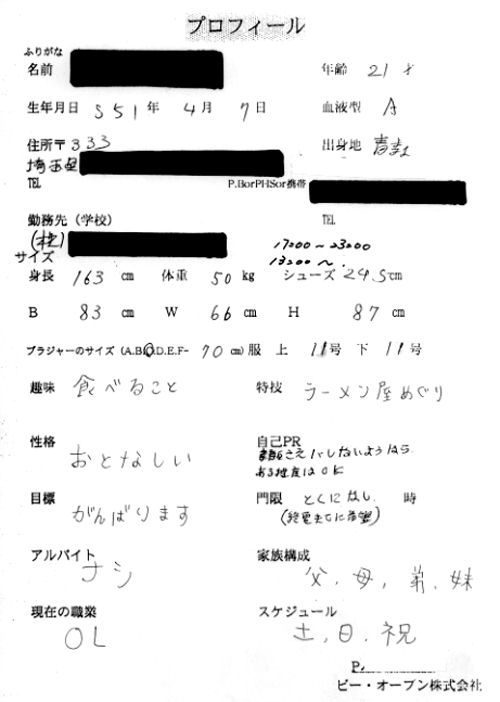 プロフィール
ふりがな
名前 年齢 21才
生年月日 S51年 4月 7日 血液型 A
住所〒333 出身地 青森
埼玉県
TEL P.BorPHSor携帯
勤務先(学校) TEL
(株) 17:00~23:00
サイズ 13:00~
身長 163 cm 体重 50 kg シューズ 24.5cm
B 83 cm W 66 cm H 87 cm
ブラジャーのサイズ (A.B.C.D.E.F- 70 cm) 服 上 11号 下 11号
趣味 食べること 特技 ラーメン屋めぐり
性格 おとなしい 自己PR
さえバレしないようなら
ある程度はOK
目標 がんばります 門限 とくになし 時
(終電までに希望)
アルバイト ナシ 家族構成 父、母、弟、妹
現在の職業 OL スケジュール 土、日、祝
P.
ビー・オーブン株式会社